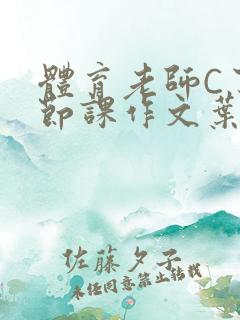 體育老師C了
節課作文葉
佐藤夕子
未任同意禁止转载